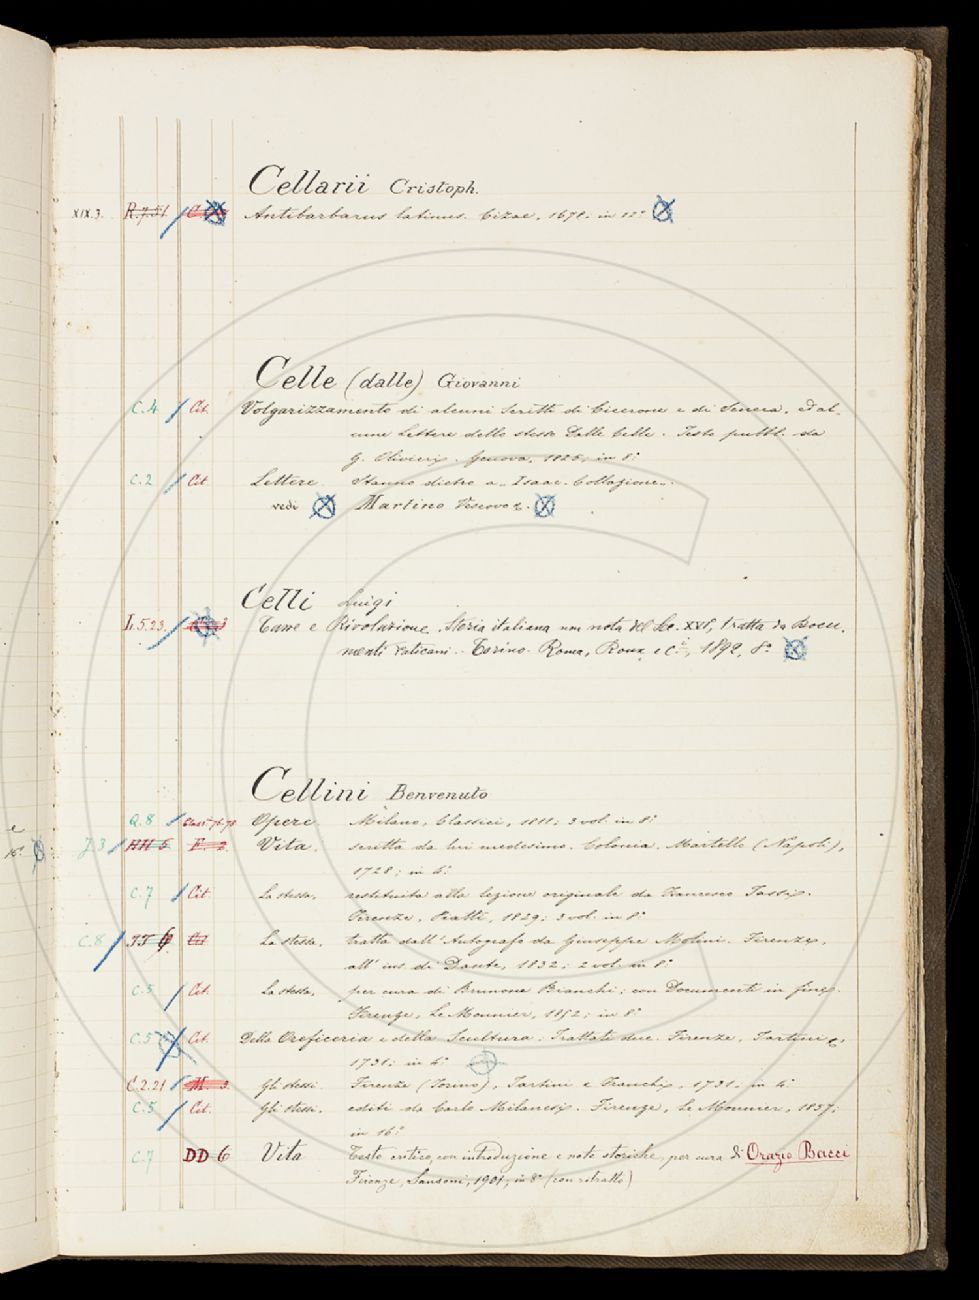 Cellarii Cristoph.
XIX.3. R.7.51 Antibarbarus latinus. Cizae, 1678. in 12°
Celle (dalle) Giovanni
C.4 Cit. Volgarizzamento di alcuni scritti di Cicerone e di Seneca, ed al-
cune lettere dello stesso Dalle Celle. Testo pubbl. da
G. Olivieri. Genova, 1825, in 8°
C.2 Cit Lettere. Stanno dietro a „Isaac. Collazione„.
vedi Martino Vescovo.
Celli Luigi
L.5.23. Tasse e Rivoluzione. Storia italiana non nota del Sec. XVI, tratta da Docu-
menti vaticani. Torino. Roma, Roux e C.i, 1892, 8°
Cellini Benvenuto
Q.8 Class. Opere. Milano, Classici, 1811; 3 vol. in 8°
J.3 HH 5 F. 2 Vita. scritta da lui medesimo. Colonia. Martello (Napoli),
1728; in 4°
C.7 Cit. La stessa, restituita alla lezione originale da Francesco Tassi.
Firenze, Piatti, 1829; 3 vol. in 8°
C.8 Cit La stessa, tratta dall'Autografo da Giuseppe Molini. Firenze,
all'ins. di Dante, 1832; 2 vol. in 8°
C.5 Cit. La stessa, per cura di Brunone Bianchi; con Documenti in fine.
Firenze, Le Monnier, 1852; in 8°
C.5 Cit. Della Oreficeria e della Scultura. Trattati due. Firenze, Tartini e,
1731. in 4°
C.2.21 M. 3 Gli stessi Firenze, Tartini e Franchi, 1731. in 4°
C.5. Cit. Gli stessi, editi da Carlo Milanesi. Firenze, Le Monnier, 1857;
in 16°
C.7 DD 6 Vita Testo critico, con introduzione e note storiche, per cura di Orazio Bacci
Firenze, Sansoni, 1901, in 8° (con ritratto)